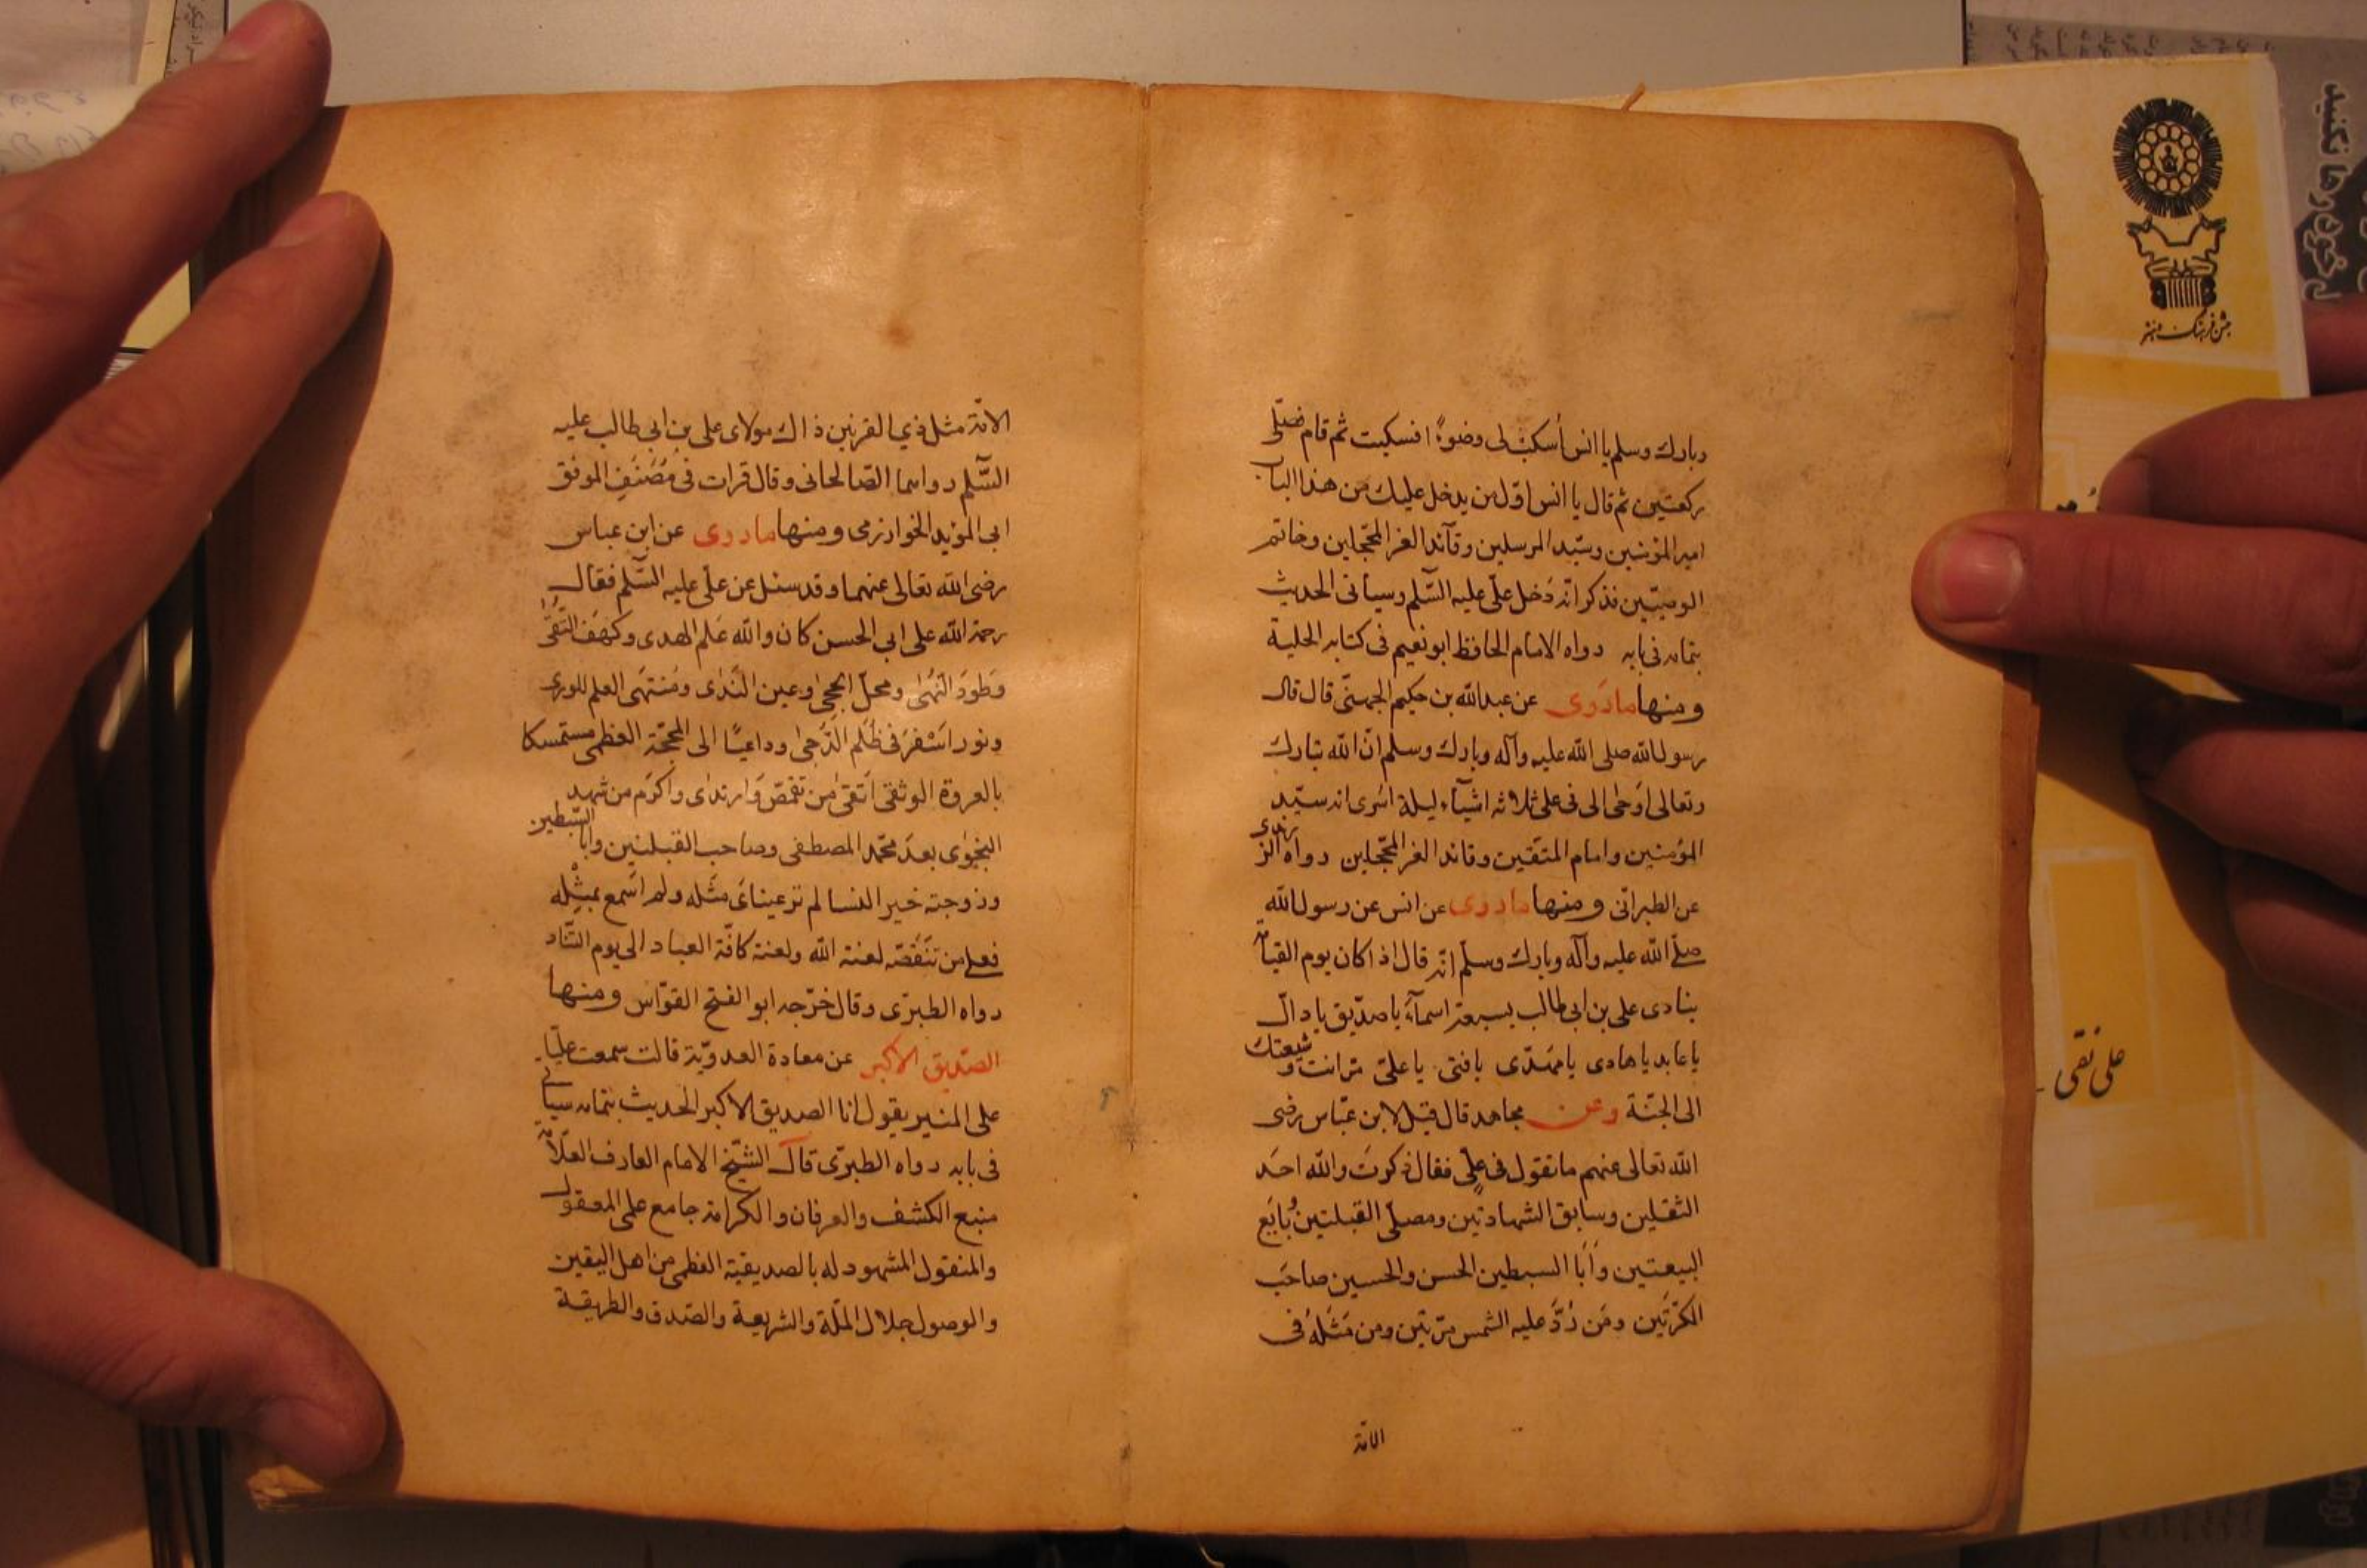 وبارك وسلم يا انس أسكب لى وضوءًا فسكبت ثم قام فصلّى
ركعتين ثم قال يا انس اوّل من يدخل عليك من هذا الباب
امير المؤمنين وسيّد المرسلين وقآئد الغر المحجّلين وخاتم
الوصيّين فذكر انّه دَخل علىّ عليه السّلم وسيأتى الحديث
بتمامه فى بابه رواه الامام الحافظ ابو نعيم فى كتابه الحلية
ومنها ما رَوى عن عبد الله بن حكيم الجهنىّ قال قال
رسول الله صلى الله عليه وآله وبارك وسلم انّ الله تبارك
وتعالى اَوحٰى الى فى على ثلاثه اشيآء ليلة اسرى انه سيّد
المؤمنين وامام المتّقين وقائد الغر المحجّلين رواه الزرندى
عن الطبرانى ومنها ما روى عن انس عن رسول الله
صلّے الله عليه وآله وبارك وسلّم انّه قال اذا كان يوم القيامة
ينادى على بن ابى طالب بسبعة اسمآءٍ يا صدّيق يا دالّ
يا عابد يا هادى يا مهدّى يا فتى يا علىّ مرّ انت وشيعتك
الى الجنّة وعن مجاهد قال قيل لابن عبّاس رضى
الله تعالى عنهم ما تقول فى علىٍّ فقال ذكرتَ والله احَد
الثقلين وسابق الشهادتين ومصلّى القبلتين بُايَع
البيعتين وَاَبَا السبطين الحسن والحسين صاحَب
الكرّتَين ومَن رُدَّ عليه الشمس مرّتين ومن مَثَلُهُ فى
الامّة
الامّة مثل ذي القرنين ذاك مولاى على بن ابى طالب عليه
السَّلم رواهما الصّالحانى وقال قرات فى مُصَنَّفِ الموفق
ابى المؤيد الخوارزمى ومنها ما روى عن ابن عباس
رضى الله تعالى عنهما وقد سئل عن علىّ عليه السَّلم فقال
رحمة الله على ابى الحسن كان والله عَلم الهدى وكهَف التُّقىٰ
وَطودَ النّهىٰ ومحلّ الحِجىٰ وعين النَّدٰى ومُنتهَى العلم للورى
ونور اسَفرَ فى ظُلَم الدّجىٰ وداعيًا الى المحجّة العظمى مستمسكا
بالعروة الوثقىٰ اَتقىٰ من تقمّصَ وَارتدٰى واكرَم من شهد
النجوٰى بعدَ محّمد المصطفى وصاحب القبلتين وابا السّبطين
وزوجته خير النسا لم تر عيناىَ مثَله ولم اَسمع بمثْله
فعلى من تنَقَّصَه لعنة الله ولعنة كافّة العباد الى يوم التّناد
رواه الطبرّى وقال خرّجه ابو الفتح القوّاس ومنها
الصّديق الاكبر عن معادة العدويّة قالت سمعت عليًا
على المنبر يقول انا الصديق الاكبر الحديث بتمامه سيأتى
فى بابه رواه الطبرّى قال الشّيخ الامام العارف العّلامة
منبع الكشف والعرفان والكرامة جامع علمى المعقول
والمنقول المشهود له بالصديقيّة العظمى من اهل اليقين
والوصول جلال الملّة والشريعة والصّدق والطريقة
جشن فرهنگ و هنر
علی نقی